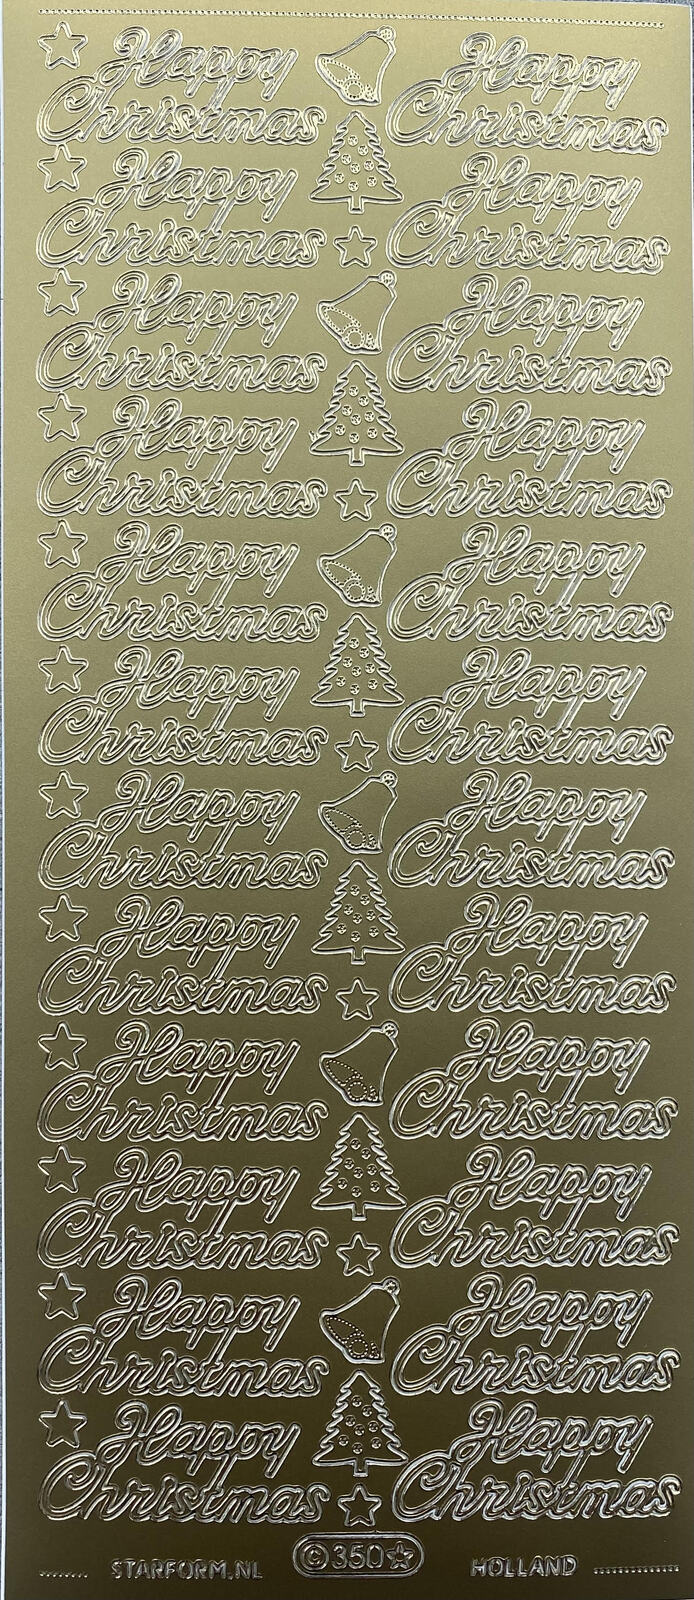 Happy Happy
Christmas Christmas
Happy Happy
Christmas Christmas
Happy Happy
Christmas Christmas
Happy Happy
Christmas Christmas
Happy Happy
Christmas Christmas
Happy Happy
Christmas Christmas
Happy Happy
Christmas Christmas
Happy Happy
Christmas Christmas
Happy Happy
Christmas Christmas
Happy Happy
Christmas Christmas
Happy Happy
Christmas Christmas
Happy Happy
Christmas Christmas
STARFORM.NL ©350☆ HOLLAND